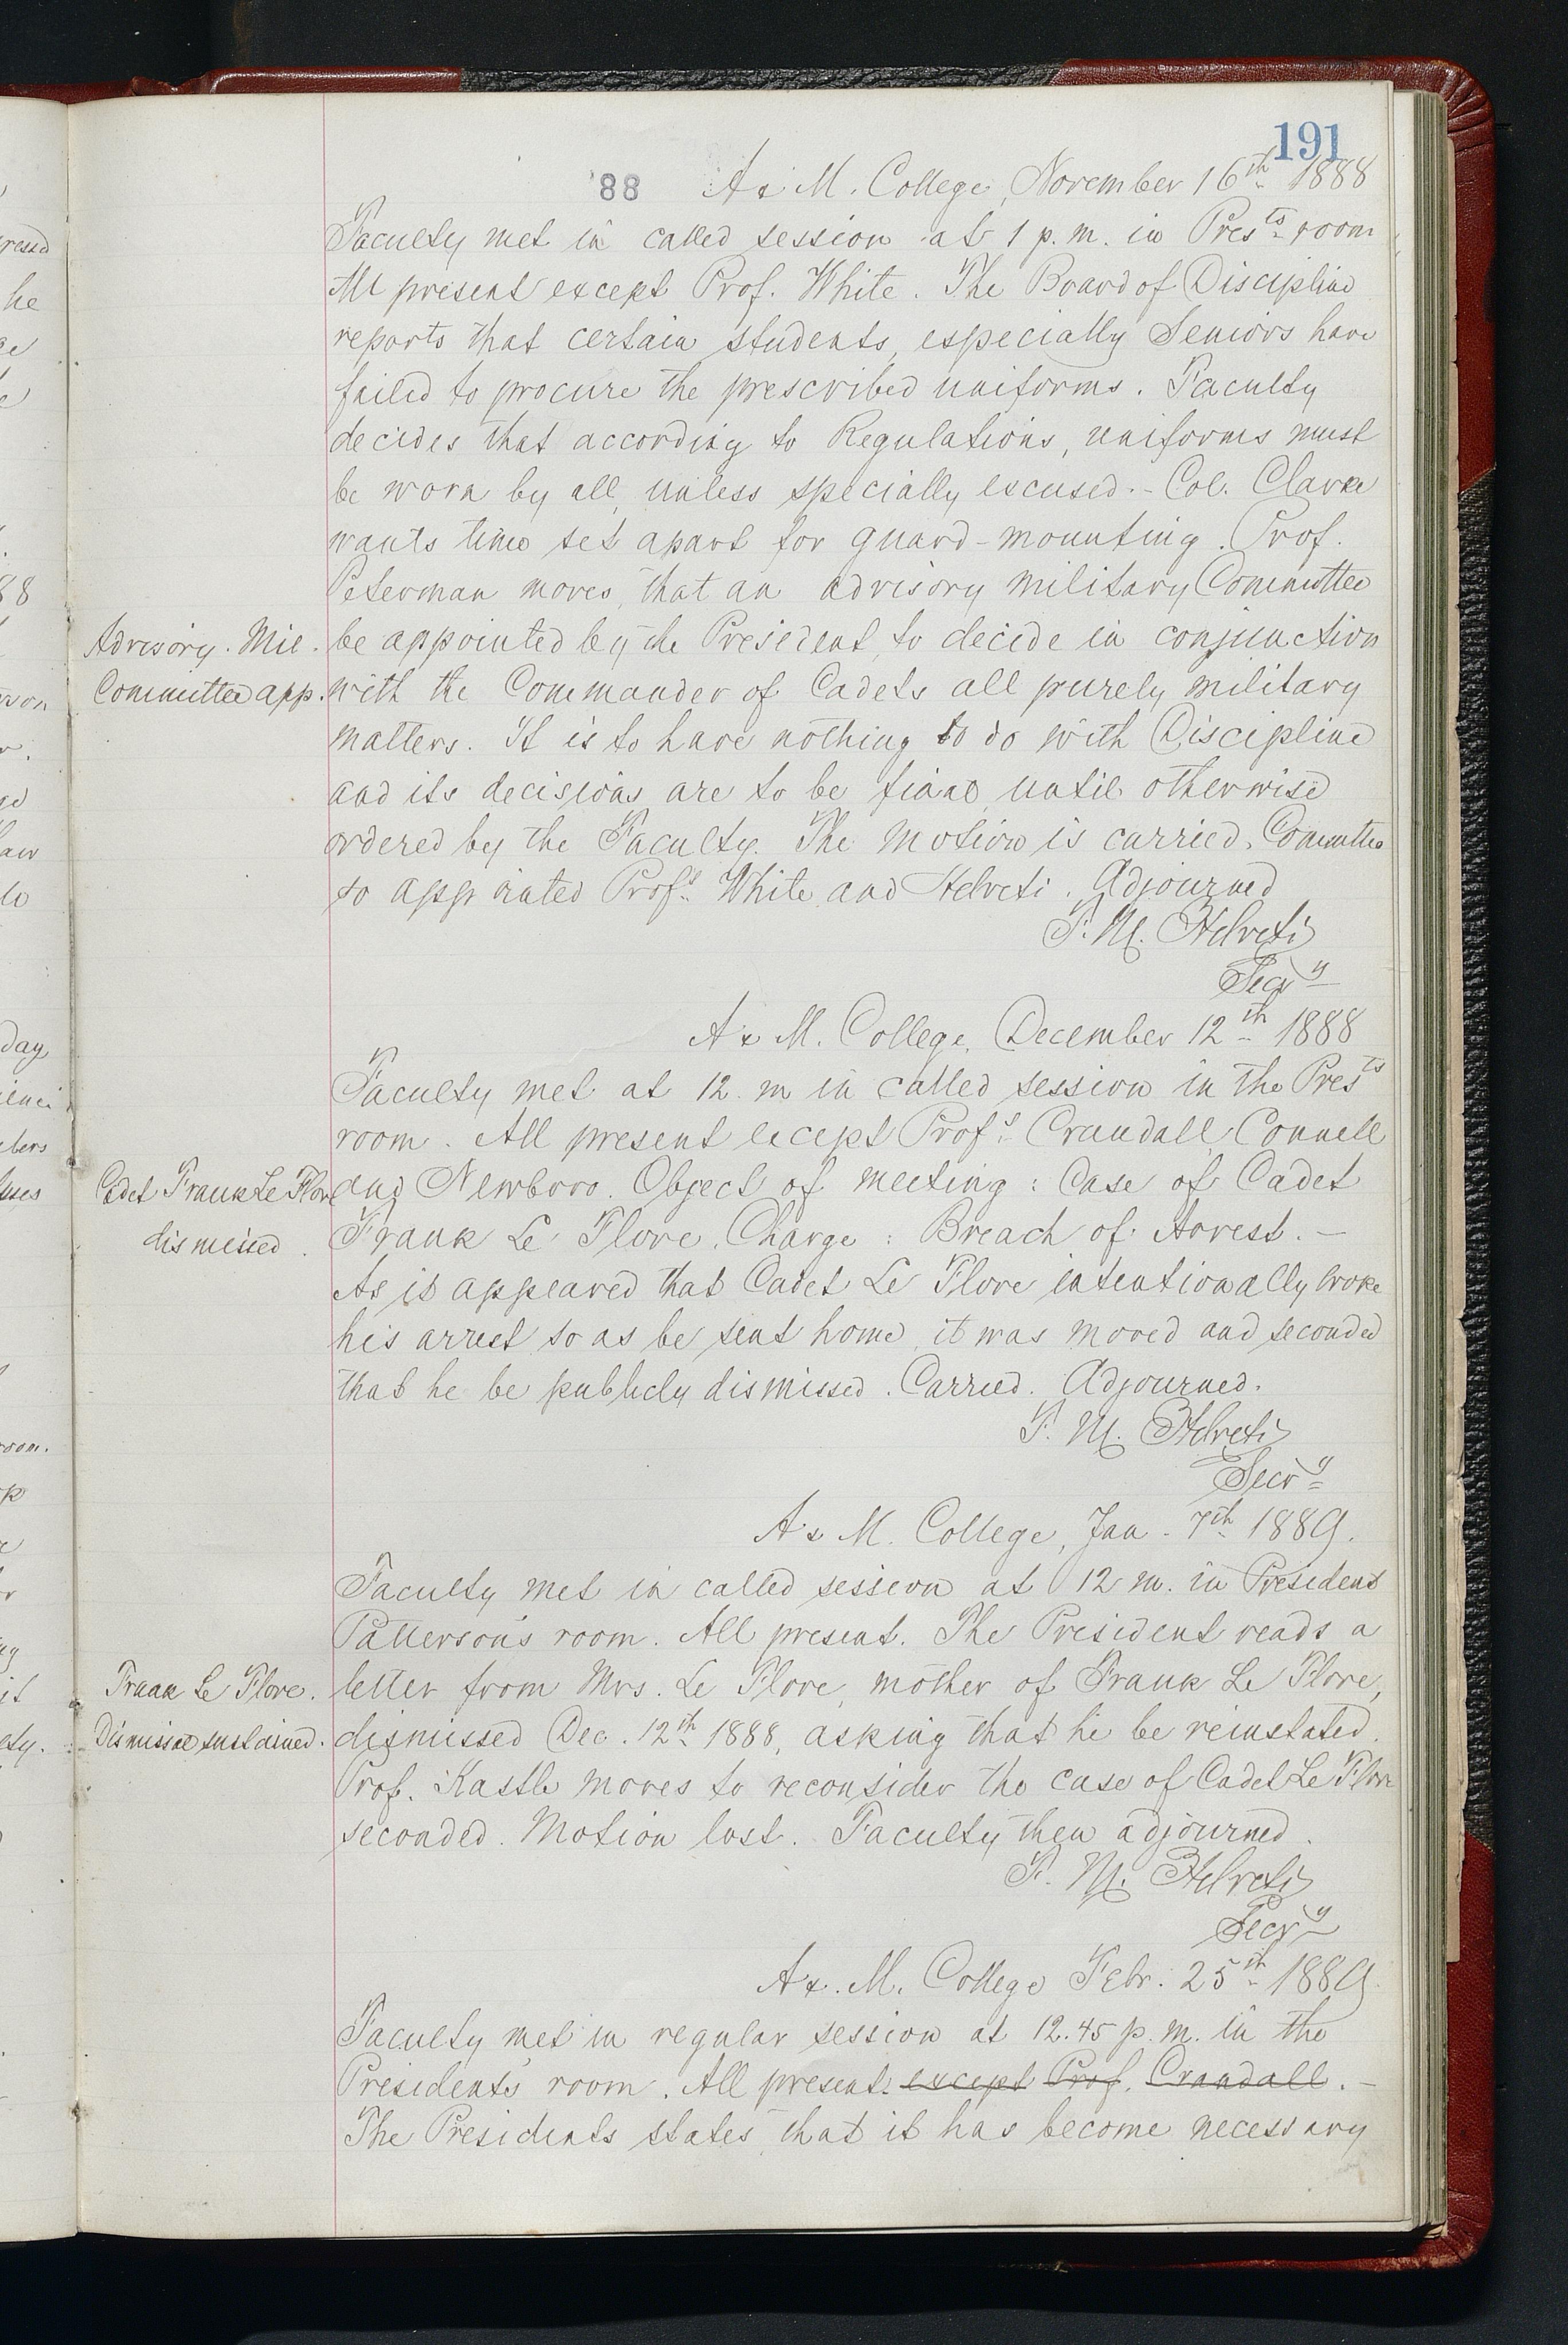 191
'88
A & M. College, November 16th 1888
Faculty met in called session at 1 p. m. in Pres.ts room
All present except Prof. White. The Board of Discipline
reports that certain students, especially Seniors have
failed to procure the prescribed uniforms. Faculty
decides that according to Regulations, uniforms must
be worn by all, unless specially excused. - Col. Clarke
wants time set apart for guard-mounting. Prof.
Peterman moves, that an advisory military Committee
Advisory. Mil.
be appointed by the President, to decide in conjunction
Committee app.
with the Commander of Cadets all purely military
matters. It is to have nothing to do with Discipline
and its decisions are to be final, until otherwise
ordered by the Faculty. The Motion is carried. Committee
so appointed Profs. White and Helveti. Adjourned
F. M. Helveti
Secry
A & M. College, December 12th 1888
Faculty met at 12. m in called session in the Prests
room. All present except Profs. Crandall, Connell
Cadet Frank Le Flore
and Newboro. Object of meeting: Case of Cadet
dismissed.
Frank Le Flore. Charge: Breach of Arrest. -
As it appeared that Cadet Le Flore intentionally broke
his arrest so as be sent home, it was moved and seconded
that he be publicly dismissed. Carried. Adjourned.
F. M. Helveti
Secry
A & M. College, Jan. 7th 1889.
Faculty met in called session at 12 m. in President
Patterson's room. All present. The President reads a
Frank Le Flore.
letter from Mrs. Le Flore, mother of Frank Le Flore,
Dismissal sustained.
dismissed Dec. 12th 1888, asking that he be reinstated.
Prof. Kastle moves to reconsider the case of Cadet Le Flore
seconded. Motion lost. Faculty then adjourned.
F. M. Helveti
Secry
A &. M. College Febr. 25th 1889.
Faculty met in regular session at 12.45 p. m. in the
President's room. All present. except Prof. Crandall. -
The Presidents states, that it has become necessary